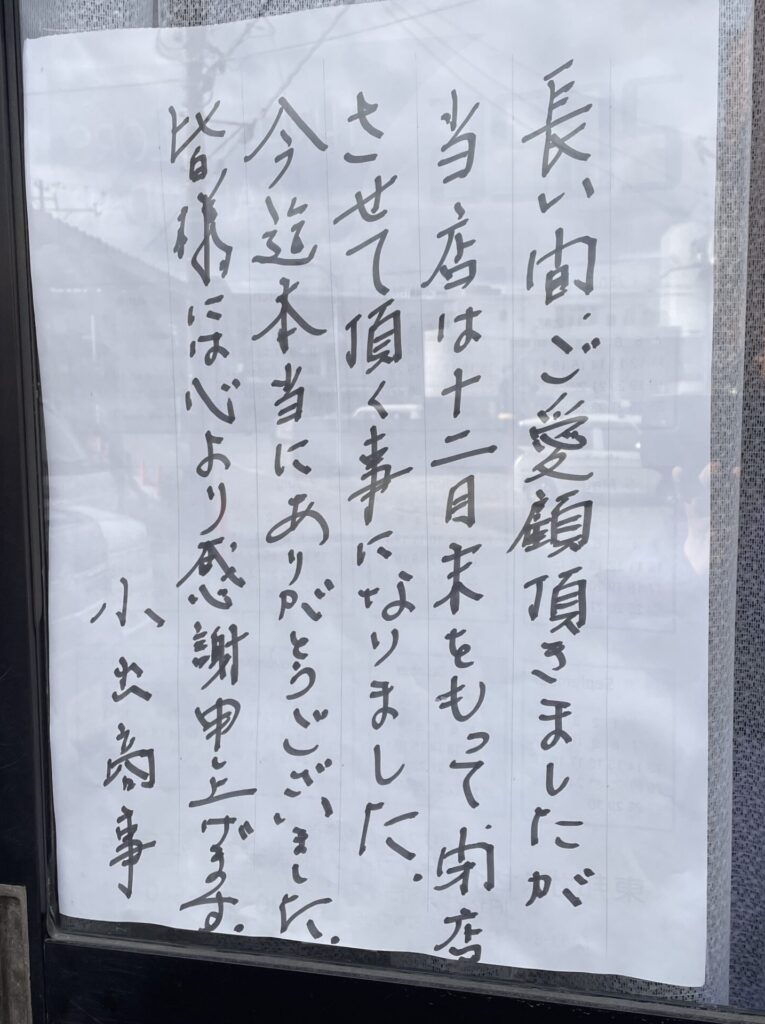 長い間、ご愛顧頂きましたが
当店は十二月末をもって閉店
させて頂く事になりました。
今迄本当にありがとうございました。
皆様には心より感謝申し上げます。
小出商事